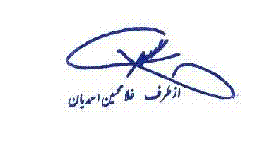 از طرف غلامحسین احمدیان